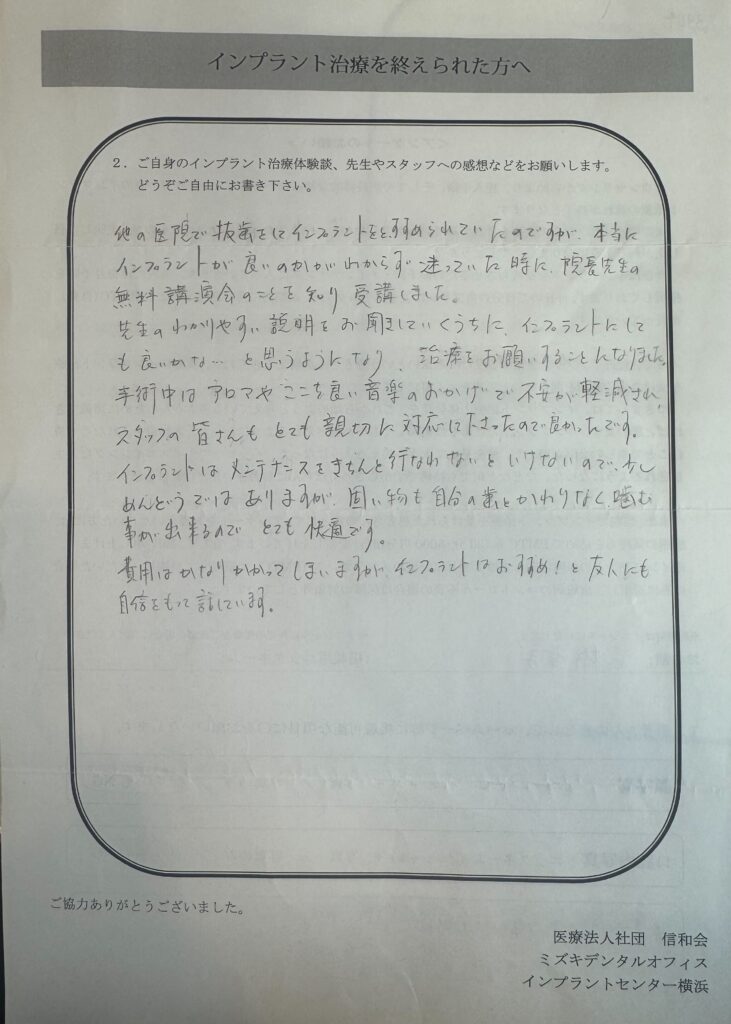 インプラント治療を終えられた方へ
2．ご自身のインプラント治療体験談、先生やスタッフへの感想などをお願いします。
どうぞご自由にお書き下さい。
他の医院で抜歯をしてインプラントをと、すすめられていたのですが、本当に
インプラントが良いのかがわからず迷っていた時に、院長先生の
無料講演会のことを知り受講しました。
先生のわかりやすい説明をお聞きしていくうちに、インプラントにして
も良いかな…と思うようになり、治療をお願いすることになりました。
手術中はアロマやここち良い音楽のおかげで不安が軽減され、
スタッフの皆さんもとても親切に対応して下さったので良かったです。
インプラントはメンテナンスをきちんと行なわないといけないので、少し
めんどうではありますが、固い物も自分の歯とかわりなく噛む
事が出来るのでとても快適です。
費用はかなりかかってしまいますが、インプラントはおすすめ！と友人にも
自信をもって話しています。
ご協力ありがとうございました。
医療法人社団　信和会
ミズキデンタルオフィス
インプラントセンター横浜